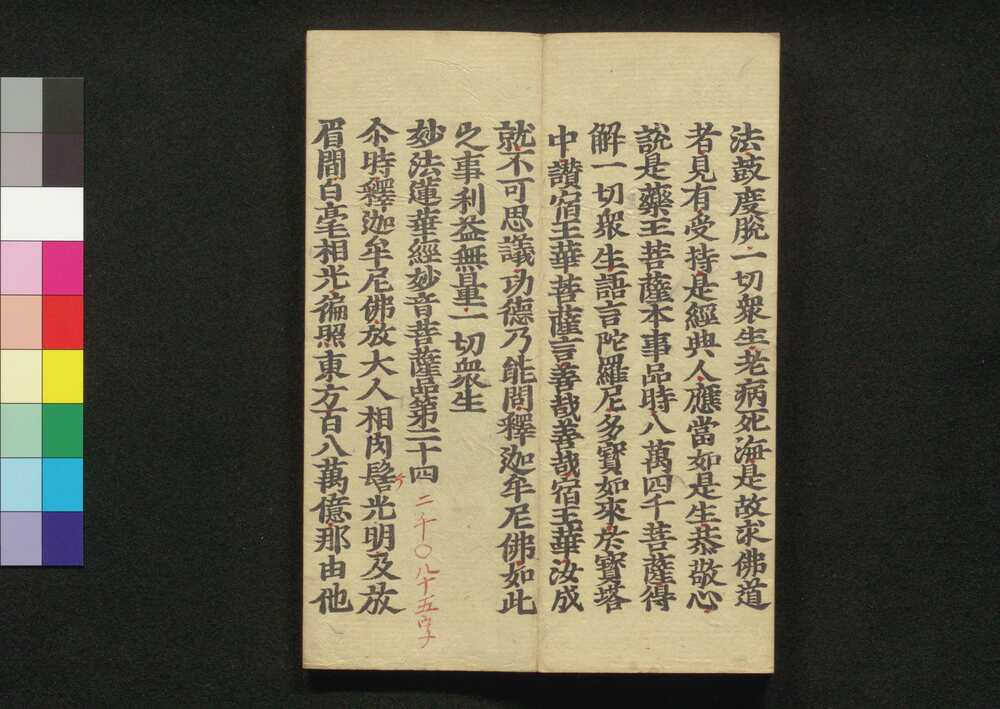 法鼓度脫一切衆生老病死海是故求佛道
者見有受持是經典人應當如是生恭敬心
說是藥王菩薩本事品時八萬四千菩薩得
解一切衆生語言陀羅尼多寶如來於寶塔
中讚宿王華菩薩言善哉善哉宿王華汝成
就不可思議功德乃能問釋迦牟尼佛如此
之事利益無量一切衆生
妙法蓮華經妙音菩薩品第二十四
二千〇八十五字
尒時釋迦牟尼佛放大人相肉髻光明及放
眉間白毫相光徧照東方百八萬億那由他